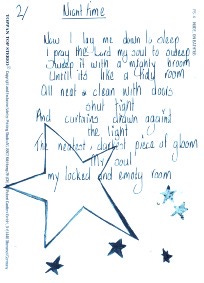 2/
Night time
Now I lay me down to sleep
I pray the Lord my soul to
Sweep it with a mighty broom
Until it's like a tidy room
All neat & clean with doors
shut tight
And curtains drawn against
the light
The neatest, darkest piece of gloom
My soul,
my locked and empty room